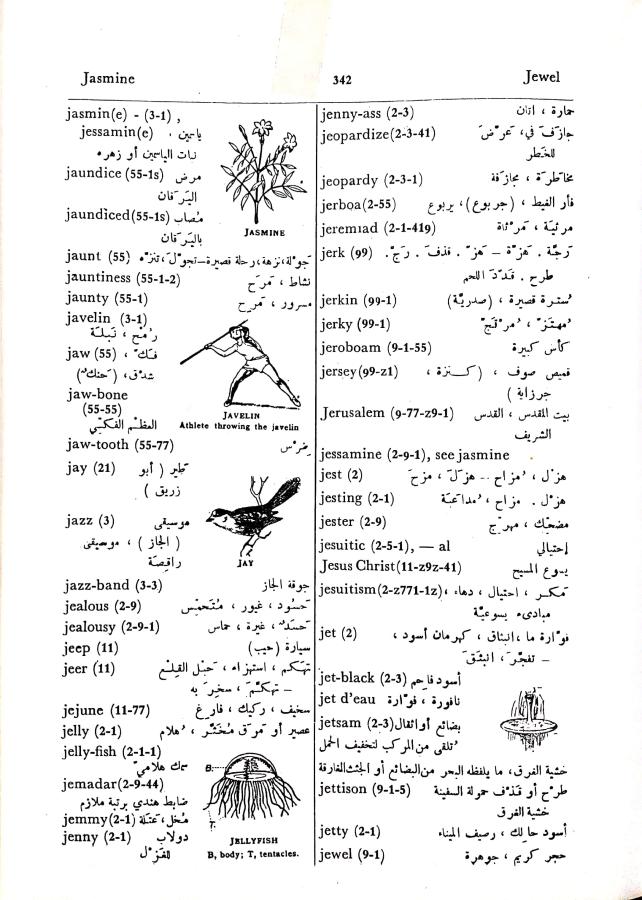 Jasmine 342 Jewel
jasmin(e) - (3-1) ,
jessamin(e) ياسمين ،
نبات الياسمين أو زهره
jaundice (55-1s) مرض
اليَرَقان
jaundiced(55-1s) مُصاب
باليَرَقان
JASMINE
jaunt (55) جَولة، نزهة، رحلة قصيرة – تجوّلَ، تنزّه
jauntiness (55-1-2) نشاط ، مَرَح
jaunty (55-1) مسرور ، مَرِح
javelin (3-1)
رُمْح ، نَبلة
jaw (55) فَكّ ،
شدق، (حنك)
jaw-bone
(55-55)
العظم الفكّي
JAVELIN
Athlete throwing the javelin
jaw-tooth (55-77) ضِرس
jay (21) طَير ( أبو
زريق )
jazz (3) موسيقى
( الجاز ) ، موسيقى
راقِصَة
JAY
jazz-band (3-3) جوقة الجاز
jealous (2-9) حَسُود ، غيور ، مُتَحمّس
jealousy (2-9-1) حَسَد ، غيرة ، حماس
jeep (11) سيارة (جيب)
jeer (11) تهكم ، استهزاء ، حَبل القِلع
– تهكّمَ ، سخِرَ به
jejune (11-77) سخيف ، ركيك ، فارغ
jelly (2-1) عصير أو مَرَق مُخثّر ، هُلام
jelly-fish (2-1-1)
سمك هلامي
jemadar(2-9-44)
ضابط هندي برتبة ملازم
jemmy(2-1) مُخل، عتلة
jenny (2-1) دولاب
الغَزْل
B.
T.
JELLYFISH
B, body; T, tentacles.
jenny-ass (2-3) حمارة ، اتان
jeopardize(2-3-41) جازَفَ في، عَرّضَ
للخطر
jeopardy (2-3-1) مخاطَرة ، مجازَفة
jerboa(2-55) فأر الغيط ، (جربوع)، يربوع
jeremiad (2-1-419) مرثيَة ، مَرثاة
jerk (99) رَجّة . هَزّة – هَزّ . قذفَ . رَجّ .
طرح . قدّدَ اللحم
jerkin (99-1) سُترة قصيرة ، (صدريّة)
jerky (99-1) مُهتزّ ، مُرتجّ
jeroboam (9-1-55) كأس كبيرة
jersey(99-z1) قميص صوف ، (كنزة ،
جرزاية )
Jerusalem (9-77-z9-1) بيت المقدس ، القدس
الشريف
jessamine (2-9-1), see jasmine
jest (2) هزل ، مُزاح – هزَلَ ، مزَحَ
jesting (2-1) هزل . مزاح ، مُداعَبة
jester (2-9) مضحِك ، مهرّج
jesuitic (2-5-1), — al إحتيالي
Jesus Christ(11-z9z-41) يسوع المسيح
jesuitism(2-z771-1z) مَكر ، احتيال ، دهاء ،
مبادىء يسوعيّة
jet (2) فوّارة ما، انبثاق ، كهرمان أسود ،
– تفجّرَ ، انبثقَ
jet-black (2-3) أسود فاحم
jet d'eau نافورة ، فوّارة
jetsam (2-3) بضائع أو اثقال
تُلقى من المركب لتخفيف الحمل
خشية الغرق، ما يلفظه البحر من البضائع أو الجثث الغارقة
jettison (9-1-5) طرح أو قذف حمولة السفينة
خشية الغرق
jetty (2-1) أسود حالك ، رصيف الميناء
jewel (9-1) حجر كريم ، جوهرة